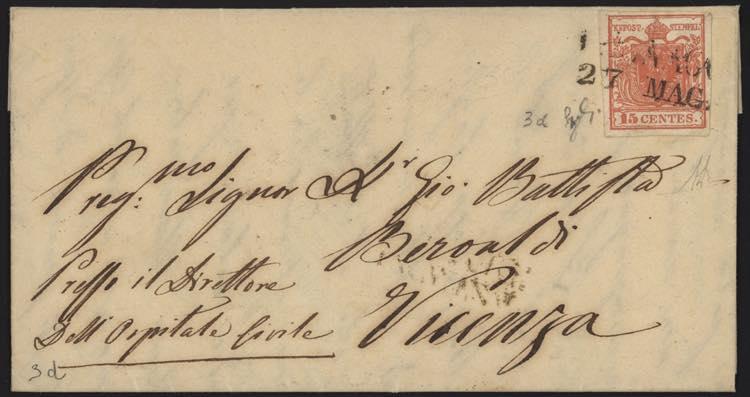 KKPOST-STEMPEL
27 MAG.
15 CENTES.
3d
Preg:mo Signor Dr Gio. Battista
Beroaldi
Presso il Direttore
Dell Ospitale Civile
Vicenza
3d